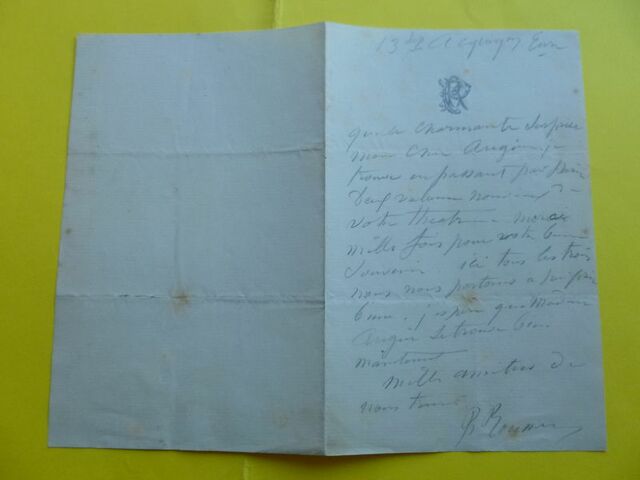 13 Acquigny Eure
PR
quelle charmante surprise
mon cher Augier, je
trouve en passant par Paris
deux volumes nouveaux de
votre theatre merci
mille fois pour votre bon
souvenir ici tous les trois
nous nous portons a
bien. j'espère que Madame
Augier se trouve bien
maintenant
Mille amities de
nous tous
Ph Rousseau